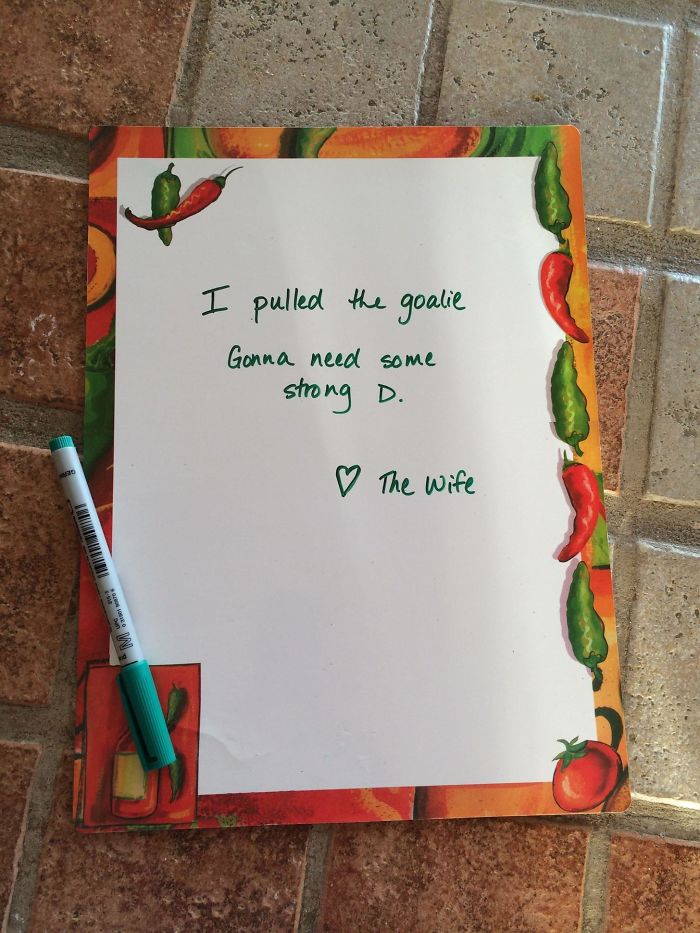 I pulled the goalie
Gonna need some
strong D.
♡ The Wife